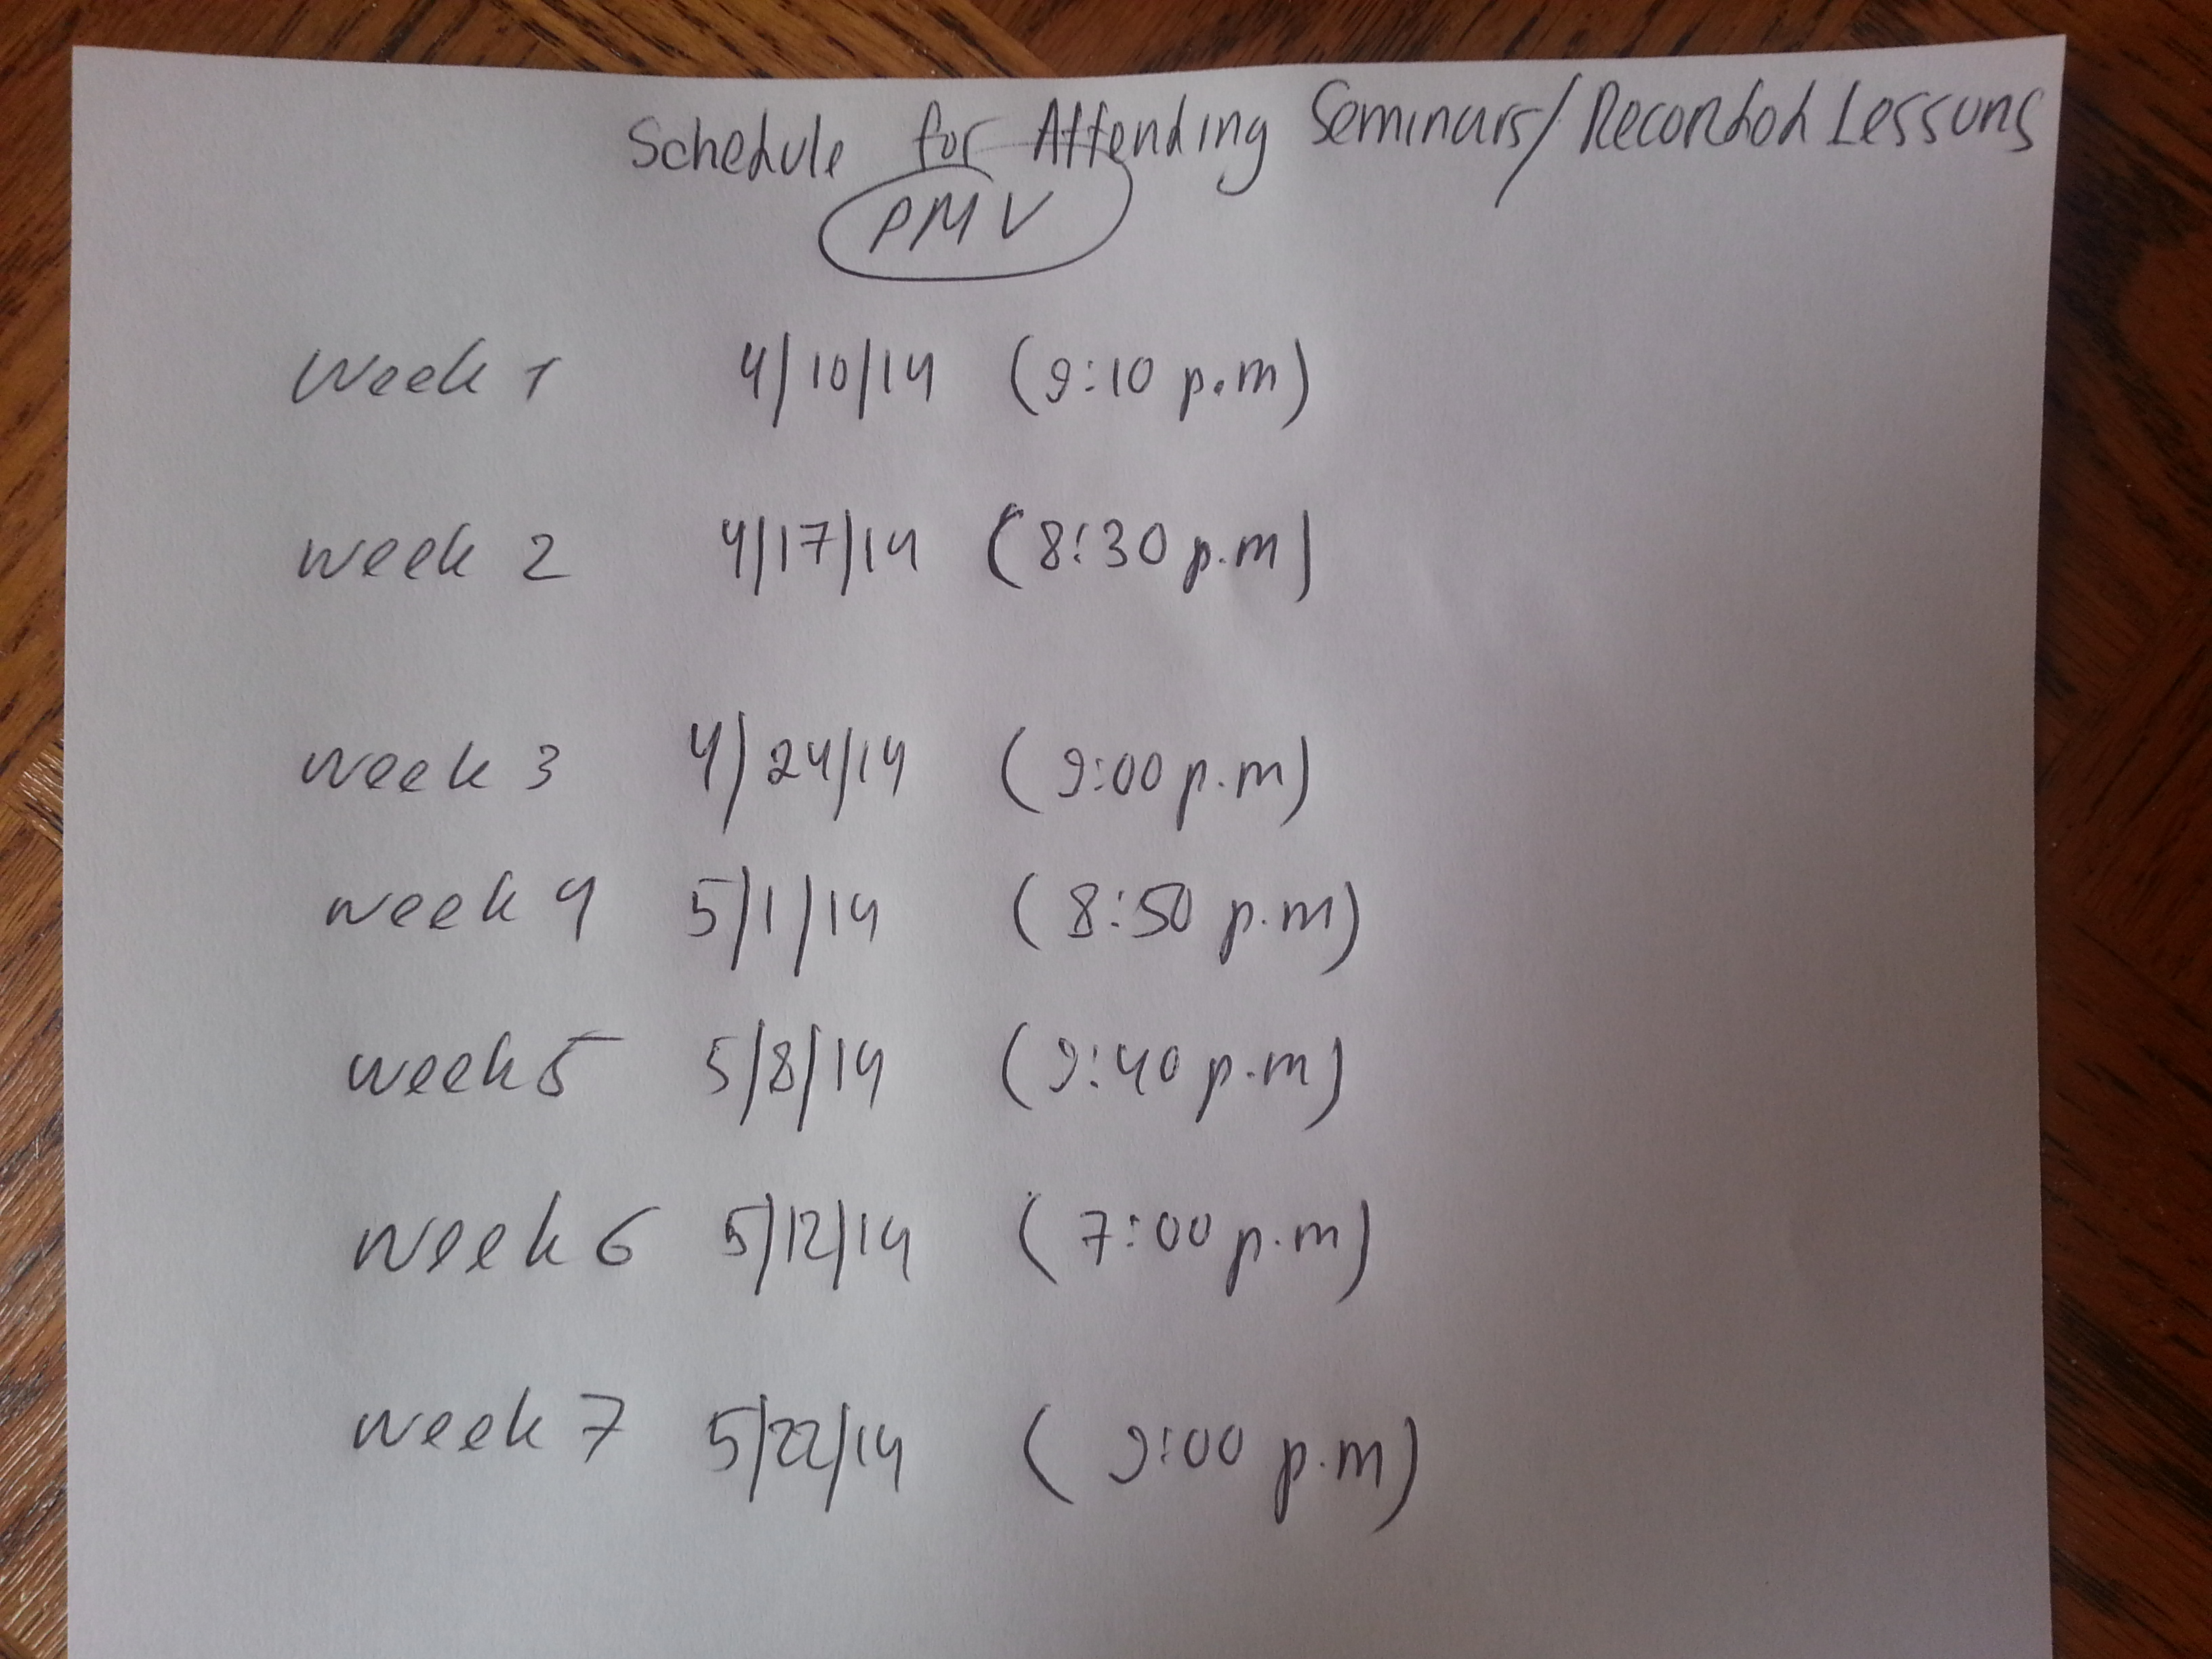 Schedule for Attending Seminars/Recorded Lessons
PMV
Week 1 4/10/14 (9:10 p.m)
week 2 4/17/14 (8:30 p.m)
week 3 4/24/14 (9:00 p.m)
week 4 5/1/14 (8:50 p.m)
week 5 5/8/14 (9:40 p.m)
week 6 5/12/14 (7:00 p.m)
week 7 5/22/14 (9:00 p.m)